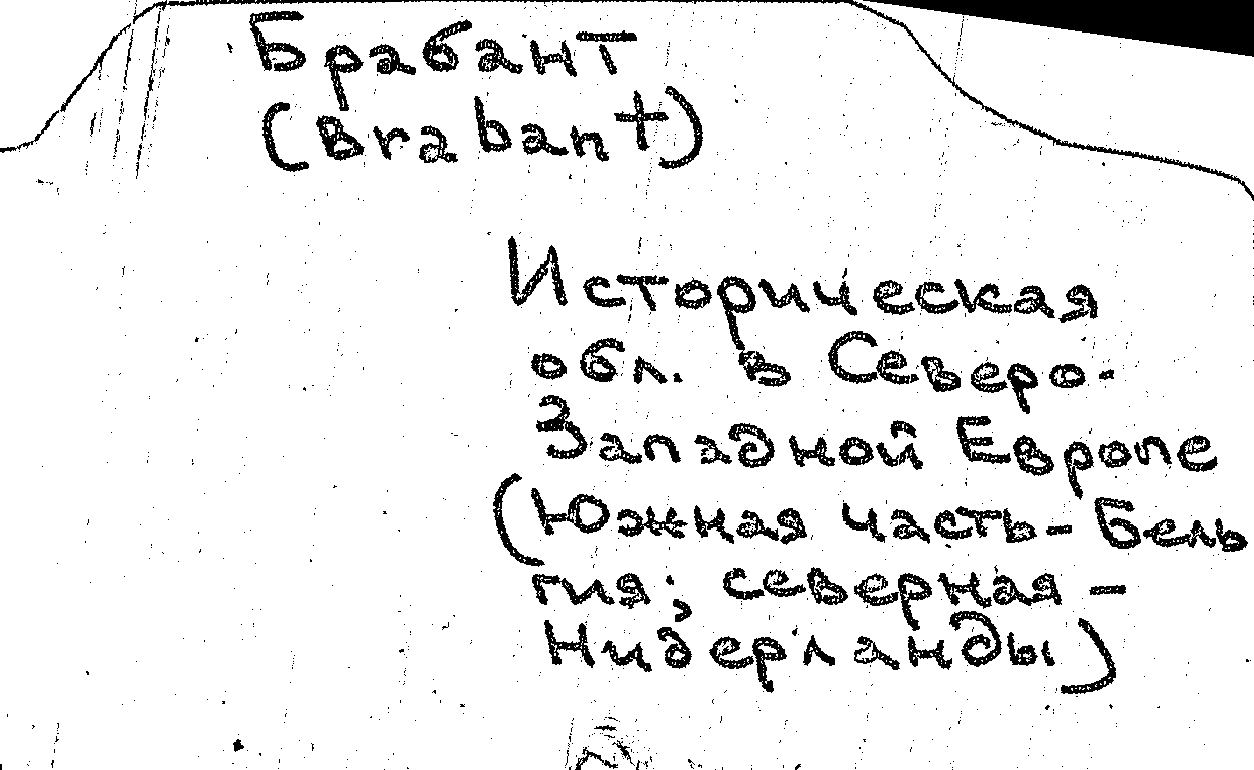 Брабант
(Brabant)
Историческая
обл. в Северо-
Западной Европе
(Южная часть - Бель
гия; северная -
Нидерланды)